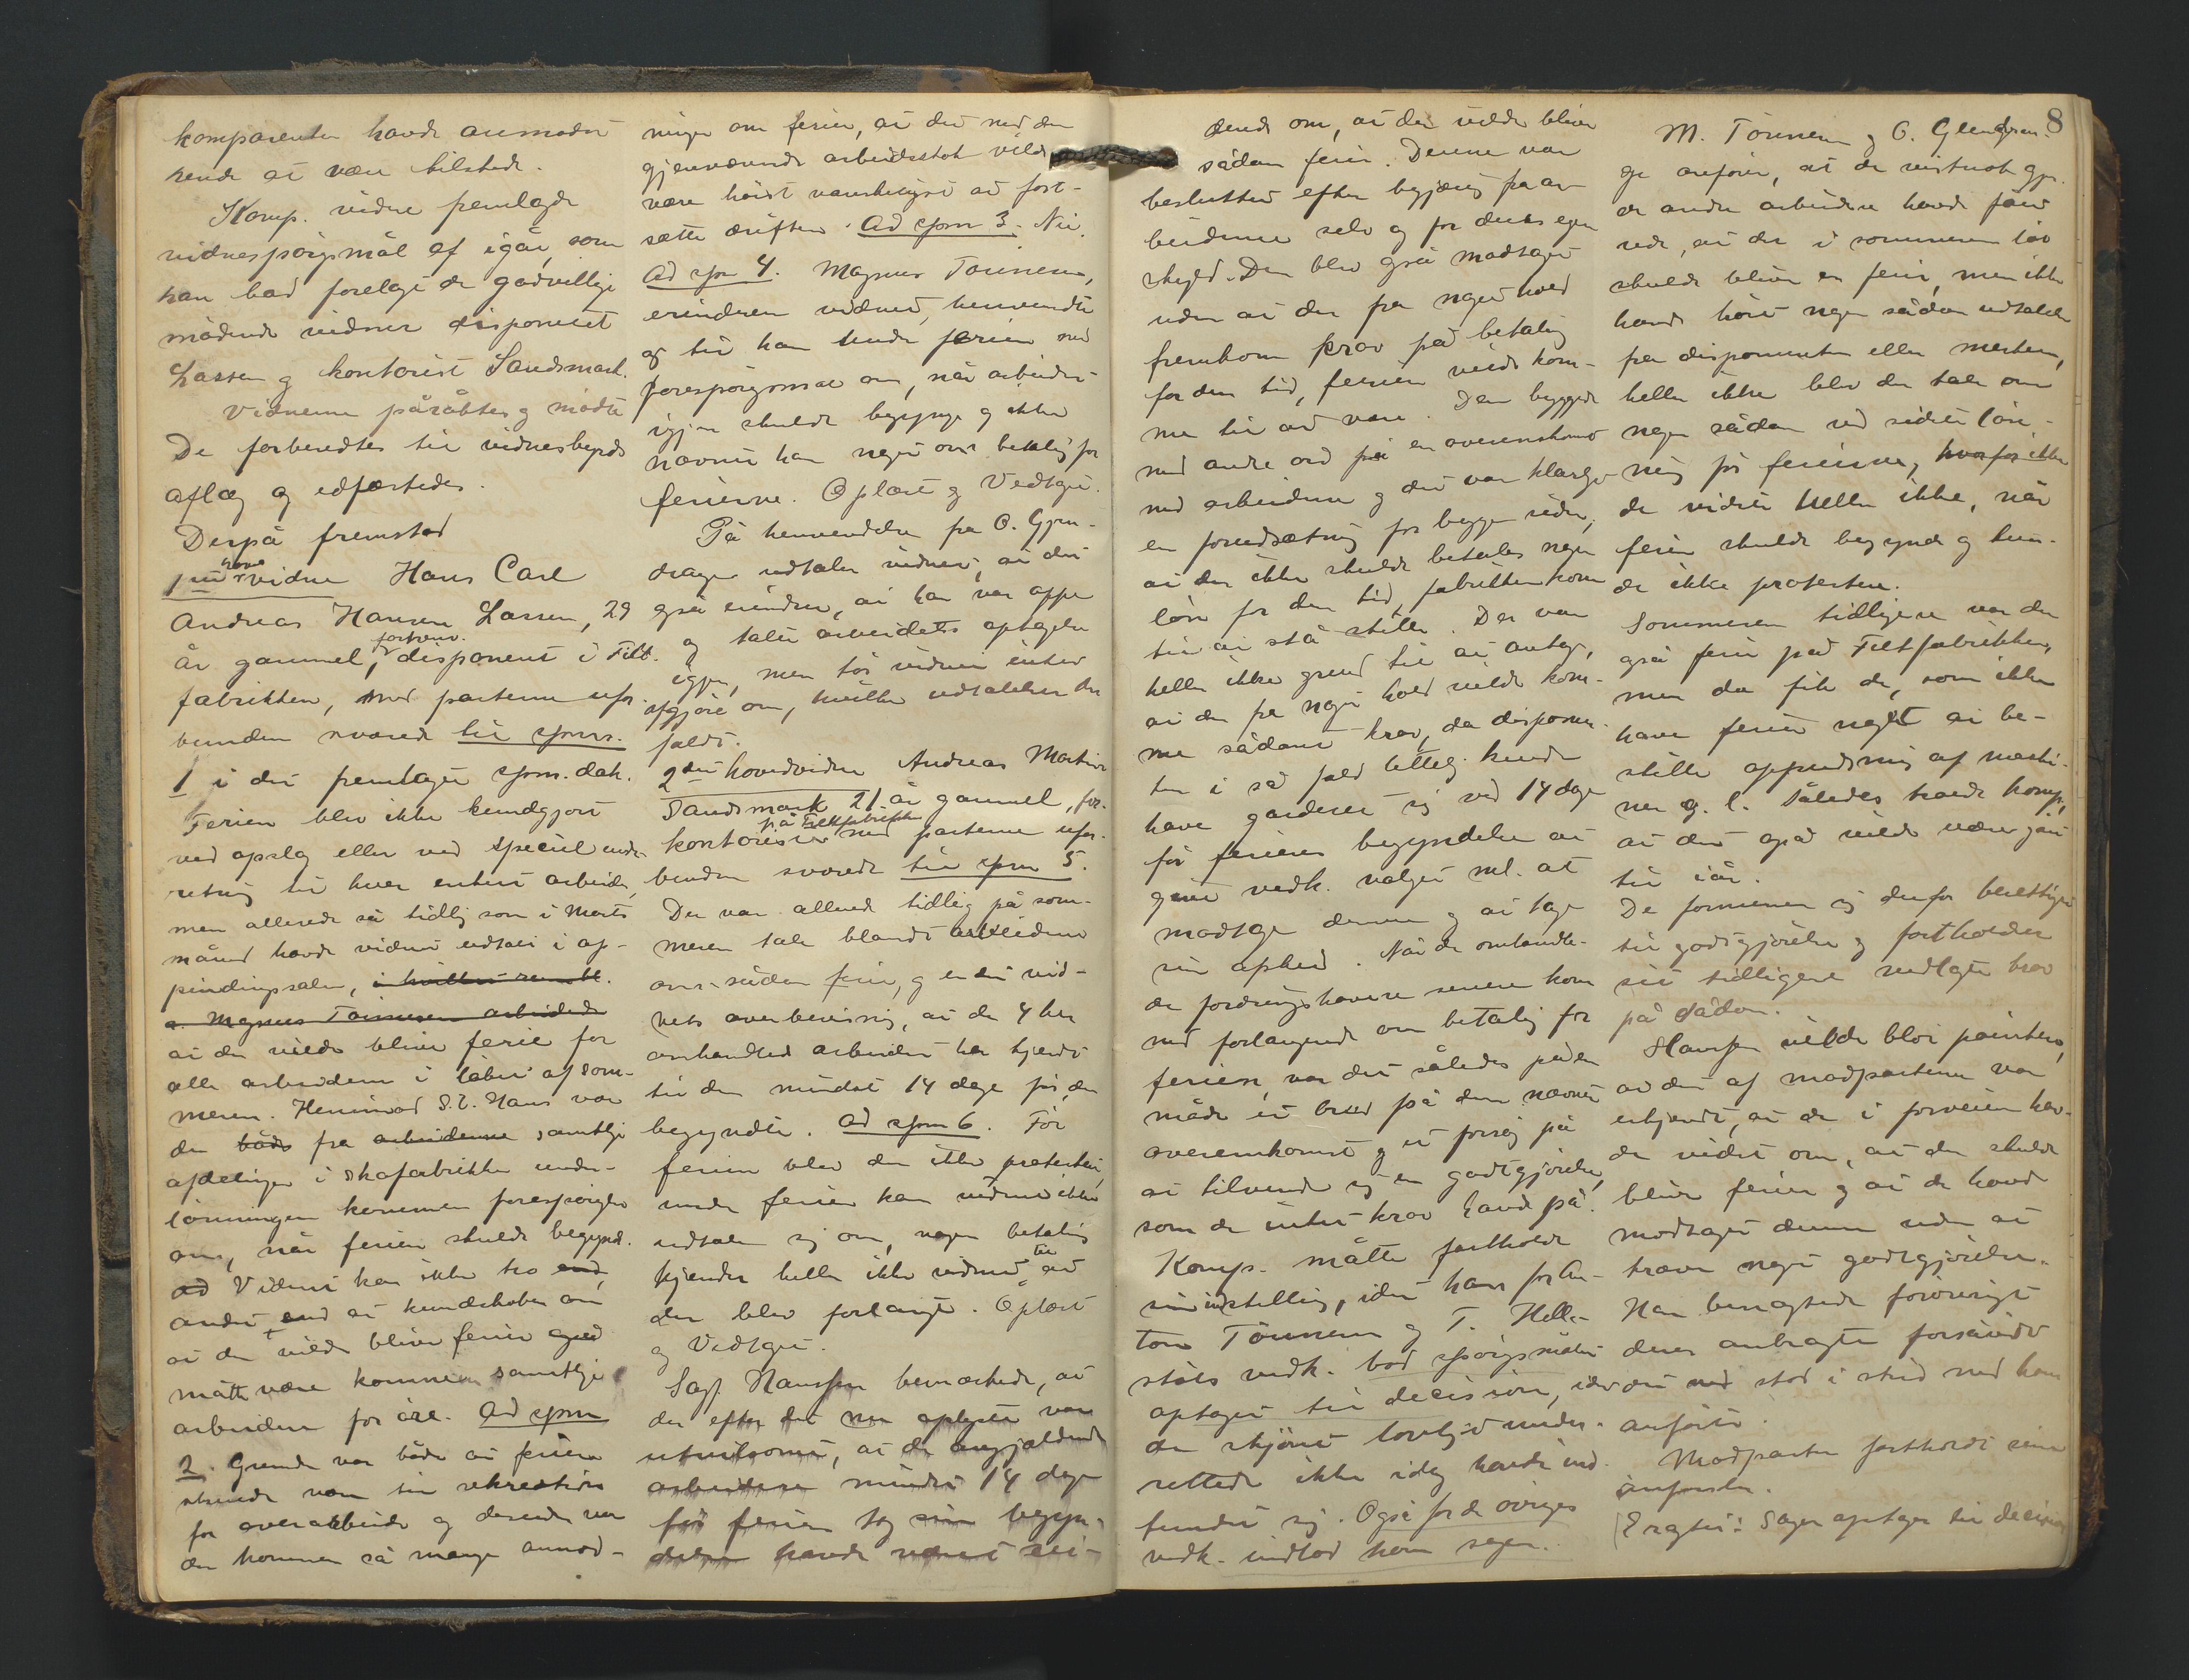 komparenten havde anmodet
hende at være tilstede.
Komp. vidne fremlagde
vidnespørgsmål af igår, som
han bad forelagt de godvillige
mødende vidner disponent
Lassen og kontorist Sandsmark.
Vidnerne påråbtes og mødte
De forberedtes til vidnesbyrds
aflæg og edfæstedes.
Derpå fremstod
1ste hoved
vidne Hans Carl
Andreas Hansen Larsen, 29
år gammel, forhenv. disponent i Filt-
fabrikken, med parterne ufor-
bunden svarede til spms.
1 i det fremlagte spm. dok.
Ferien blev ikke kundgjort
ved opslag eller ved speciel under-
retning til hver enkelt arbeider,
men allerede så tidlig som i Marts
måned havde vidnet udtalt i op-
pindingssalen, i hvilket
Magnus Tönnesen arbeidede
at der vilde blive ferie for
alle arbeiderne i løbet af som-
meren. Henimod S.t. Hans var
der både fra arbeiderne samtlige
afdelinger i Skofabrikken under
lønningen kommen forespørgsler
om, når ferien skulde begynde.
ad Vidnet kan ikke tro end
andet end at kundskaben om
at der vilde blive ferie også
måtte være kommen samtlige
arbeidere for øre. Ad spm
2. Grunden var både at ferien
skulde være til rekreation
for overarbeide og desuden var
der kommen så mange anmod-
ninger om ferier, at det med den
gjenværende arbeidsstok vilde
være høist vanskeligt at fort-
sætte driften. Ad spm 3. Nei.
Ad spm 4. Magnus Tönnesen,
erindrer vidnet, henvendte
sig til ham under ferien med
forespørgsmål om, når arbeidet
igjen skulde begynde og ikke
nævnte han noget om betaling for
ferierne. Oplæst og Vedtaget.
På henvendelse fra O. Gjen-
drager udtaler vidnet, at det
også erindrer, at han var oppe
og talte arbeidets optagelse
igjen, men tør vidnet intet
afgjøre om, hvilke udtalelser der
faldt.
2det hovedvidne Andreas Martin
Sandsmark 21 år gammel, for.
på Filtfabrikken
kontorist med parterne ufor-
bunden svarede til spm 5.
Der var allerede tidlig på som-
meren tale blandt arbeiderne
om sådan ferie, og er det vid-
nets overbevisning, at de 4 her
omhandlede arbeidere har kjendt
til den mindst 14 dage før den
begyndte. Ad spm 6. Før
ferien blev der ikke protesteret,
under ferien kan vidnet ikke
udtale sig om, nogen betaling
kjender heller ikke vidnet til at
der blev forlangt. Oplæst
og Vedtaget.
Sagf. Hanssen bemærkede, at
der efter det nu oplyste var
utvilsomt, at de angjældende
arbeidere mindst 14 dage
før ferien tog sin begyn-
delse havde været
dende om, at der vilde blive
sådan ferie. Denne var
besluttet efter begjæring fra ar-
beiderne selv og for deres egen
skyld. Den blev også modtaget
uden at der fra noget hold
fremkom krav på betaling
for den tid, ferien vilde kom-
me til at vare. Den byggede
med andre ord på en overenskomst
med arbeiderne og det var klarligvis
en forudsætning for begge sider,
at der ikke skulde betales nogen
løn for den tid, fabrikken kom
til at stå stille. Der var
heller ikke grund til at antage,
at der fra noget hold vilde kom-
me sådant krav, da disponen-
ten i så fald letteligt kunde
have garderet sig ved 14 dage
før feriens begyndelse at
give vedk. valget ml. at
modtage denne og at tage
sin afsked. Når de omhandle-
de fordringshavere senere kom
med forlangende om betaling for
ferien, var det således på en
måde et brud på den nævnte
overenskomst og et forsøg på
at tilvende sig en godtgjørelse,
som de intet krav havde på.
Komp. måtte fastholde
sin indstilling, idet han for An-
ton Tönnesen og T. Helle-
støls vedk. bad spørgsmålet
optaget til decision, idet
de skjønt lovligt under-
rettede ikke idag havde ind-
fundet sig. Også for de øvriges
vedk. indlod ham sagen.
8
M. Tönnesen og O. Gjendrager
ge anfører, at de vistnok gjen-
de andre arbeidere havde fået
vide, at der i sommerens løb
skulde blive en ferie, men ikke
havde hørt nogen sådan udtalelse
fra disponenten eller mesteren,
heller ikke blev der tale om
nogen sådan ved sidste løn-
ning før ferierne, hvorfor ikke
de vidste heller ikke, når
ferien skulde begynde og kun-
de ikke protestere.
Sommeren tidligere var der
også ferie på Filtfabrikken,
men da fik de, som ikke
have ferie noget at be-
stille oppudsning af maski-
ner o. l. Således troede komp.
at det også vilde være gået
til iår.
De formener sig derfor berettiget
til godtgjørelse og fastholder
sit tidligere nedlagte krav
på sådan.
Hanssen vilde blot påankere,
at det af modparterne var
erkjendt, at de i forveien hav-
de vidst om, at der skulde
blive ferie og at de havde
modtaget denne uden at
kræve noget godtgjørelse.
Han benægtede forøvrigt
deres anbragte forsåvidt
det stod i strid med hans
anførte.
Modparten fastholdt sine
anførsler.
Eragtet: Sagen optages til decision